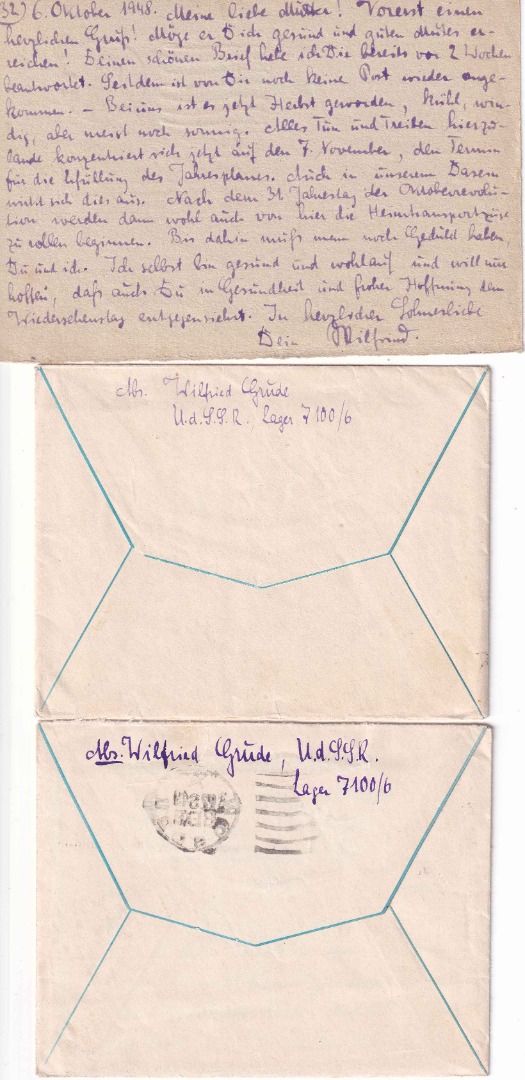 32) 6. Oktober 1948. Meine liebe Mutter! Vorerst einen
herzlichen Gruß! Möge er Dich gesund und guten Mutes er-
reichen! Deinen schönen Brief habe ich Dir bereits vor 2 Wochen
beantwortet. Seitdem ist von Dir noch keine Post wieder ange-
kommen. – Bei uns ist es jetzt Herbst geworden, kühl, win-
dig, aber meist noch sonnig. Alles Tun und Treiben hierzu-
lande konzentriert sich jetzt auf den 7. November, den Termin
für die Erfüllung des Jahresplanes. Auch in unserem Dasein
wirkt sich dies aus. Nach dem 31. Jahrestag der Oktoberrevolu-
tion werden dann wohl auch von hier die Heimtransportzüge
zu rollen beginnen. Bis dahin muß man noch Geduld haben,
Du und ich. Ich selbst bin gesund und wohlauf und will nun
hoffen, daß auch Du in Gesundheit und froher Hoffnung dem
Wiedersehenstag entgegensiehst. In herzlicher Sohnesliebe
Dein Wilfried.
Abs. Wilfried Grude
U.d.S.S.R. Lager 7100/6
Abs. Wilfried Grude, U.d.S.S.R.
Lager 7100/6